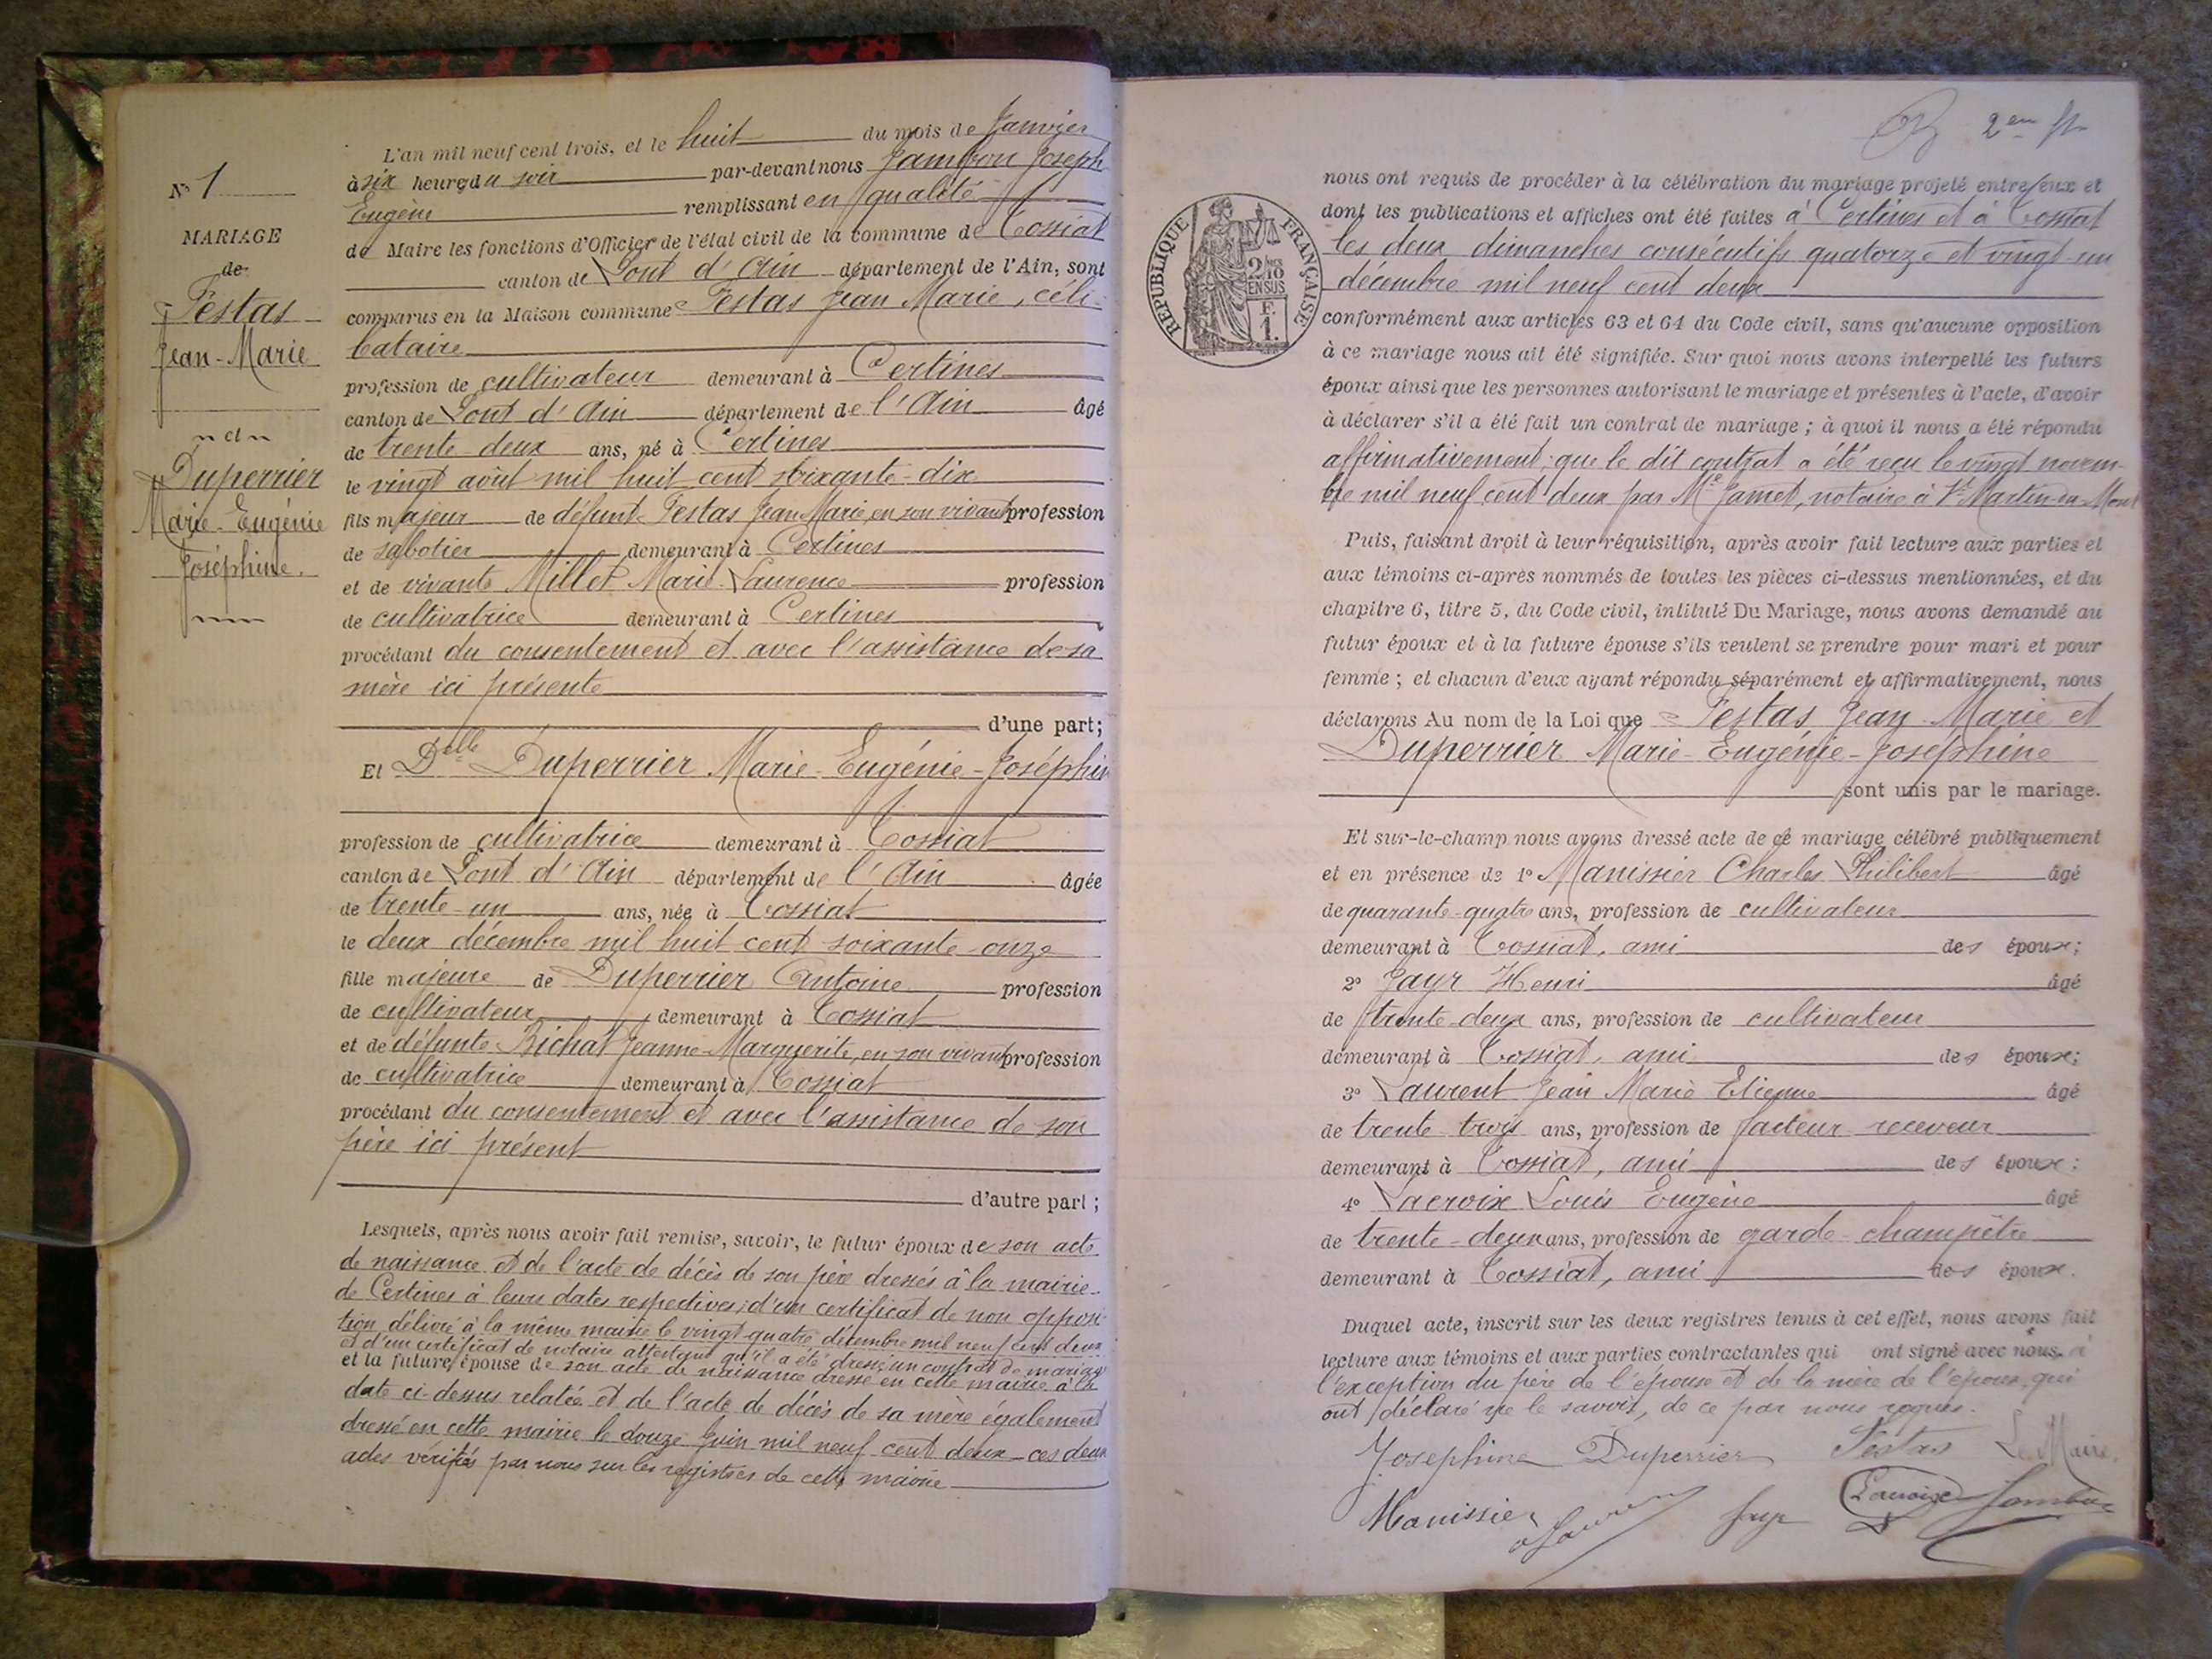 N° 1
MARIAGE
de
Festas
Jean-Marie
et
Duperrier
Marie-Eugénie
Joséphine.
L'an mil neuf cent trois, et le huit du mois de Janvier
à six heures du soir par-devant nous Jambon Joseph
Eugène remplissant en qualité
de Maire les fonctions d'Officier de l'état civil de la commune de Tossiat
canton de Pont d'Ain département de l'Ain, sont
comparus en la Maison commune Festas Jean Marie, céli-
bataire
profession de cultivateur demeurant à Certines
canton de Pont d'Ain département de l'Ain âgé
de trente-deux ans, né à Certines
le vingt août mil huit cent soixante-dix
fils majeur de défunt Festas Jean Marie, en son vivant profession
de sabotier demeurant à Certines
et de vivante Millet Marie-Laurence profession
de cultivatrice demeurant à Certines
procédant du consentement et avec l'assistance de sa
mère ici présente
d'une part;
Et Delle Duperrier Marie-Eugénie-Joséphin
profession de cultivatrice demeurant à Tossiat
canton de Pont d'Ain département de l'Ain âgée
de trente-un ans, née à Tossiat
le deux décembre mil huit cent soixante-onze
fille majeure de Duperrier Antoine profession
de cultivateur demeurant à Tossiat
et de défunte Bichat Jeanne-Marguerite, en son vivant profession
de cultivatrice demeurant à Tossiat
procédant du consentement et avec l'assistance de son
père ici présent
d'autre part;
Lesquels, après nous avoir fait remise, savoir, le futur époux de son acte
de naissance et de l'acte de décès de son père dressés à la mairie
de Certines à leurs dates respectives; d'un certificat de non opposi-
tion délivré à la même mairie le vingt-quatre décembre mil neuf cent deux
et d'un certificat de notaire attestant qu'il a été dressé un contrat de mariage
et la future épouse de son acte de naissance dressé en cette mairie à la
date ci-dessus relatée et de l'acte de décès de sa mère également
dressé en cette mairie le douze Juin mil neuf cent deux - ces deux
actes vérifiés par nous sur les registres de cette mairie
2em
REPUBLIQUE FRANÇAISE
2/10 EN SUS
F. 1.
nous ont requis de procéder à la célébration du mariage projeté entre eux et
dont les publications et affiches ont été faites à Certines et à Tossiat
les deux dimanches consécutifs quatorze et vingt-un
décembre mil neuf cent deux
conformément aux articles 63 et 64 du Code civil, sans qu'aucune opposition
à ce mariage nous ait été signifiée. Sur quoi nous avons interpellé les futurs
époux ainsi que les personnes autorisant le mariage et présentes à l'acte, d'avoir
à déclarer s'il a été fait un contrat de mariage; à quoi il nous a été répondu
affirmativement; que le dit contrat a été reçu le vingt novem-
bre mil neuf cent deux par Me Jamet, notaire à St Martin-du-Mont
Puis, faisant droit à leur réquisition, après avoir fait lecture aux parties et
aux témoins ci-après nommés de toutes les pièces ci-dessus mentionnées, et du
chapitre 6, titre 5, du Code civil, intitulé Du Mariage, nous avons demandé au
futur époux et à la future épouse s'ils veulent se prendre pour mari et pour
femme; et chacun d'eux ayant répondu séparément et affirmativement, nous
déclarons Au nom de la Loi que Festas Jean-Marie et
Duperrier Marie-Eugénie-Joséphine
sont unis par le mariage.
Et sur-le-champ nous avons dressé acte de ce mariage célébré publiquement
et en présence de 1° Manissier Charles Philibert âgé
de quarante-quatre ans, profession de cultivateur
demeurant à Tossiat, ami des époux;
2° Jayr Henri âgé
de trente-deux ans, profession de cultivateur
demeurant à Tossiat, ami des époux;
3° Laurent Jean Marie Etienne âgé
de trente-trois ans, profession de facteur-receveur
demeurant à Tossiat, ami des époux;
4° Lacroix Louis Eugène âgé
de trente-deux ans, profession de garde-champêtre
demeurant à Tossiat, ami des époux.
Duquel acte, inscrit sur les deux registres tenus à cet effet, nous avons fait
lecture aux témoins et aux parties contractantes qui ont signé avec nous, à
l'exception du père de l'épouse et de la mère de l'époux, qui
ont déclaré ne le savoir, de ce par nous requis.
Josephine Duperrier Festas Le Maire,
Manissier Laurent Jayr Lacroix Jambon